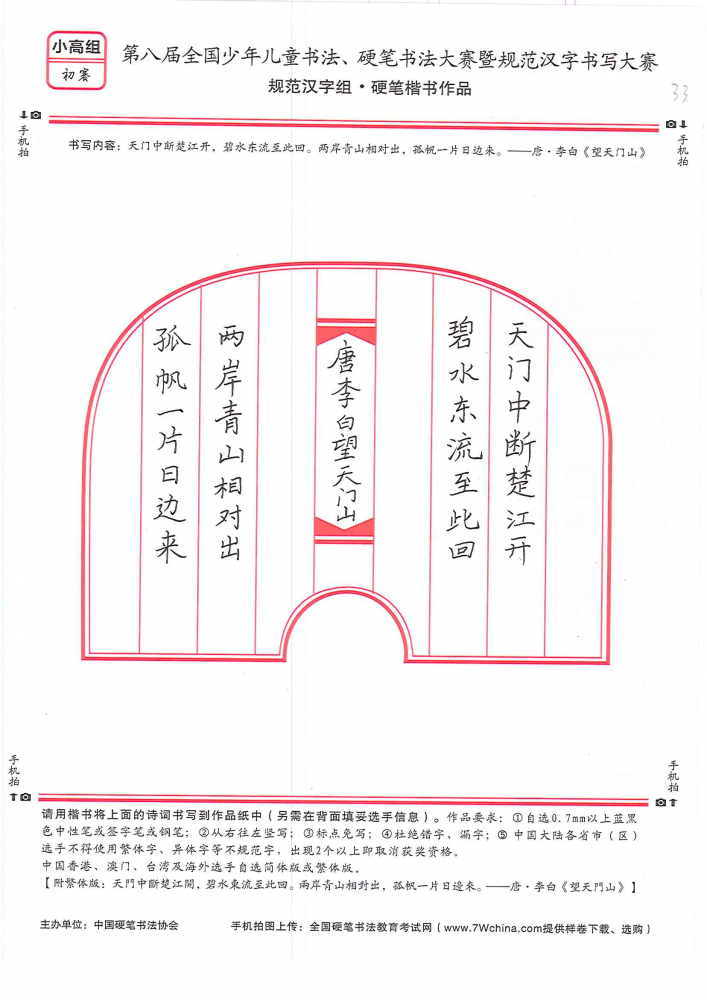 小高组
初赛
第八届全国少年儿童书法、硬笔书法大赛暨规范汉字书写大赛
规范汉字组·硬笔楷书作品
33
手机拍
手机拍
书写内容：天门中断楚江开，碧水东流至此回。两岸青山相对出，孤帆一片日边来。——唐·李白《望天门山》
天门中断楚江开
碧水东流至此回
唐李白望天门山
两岸青山相对出
孤帆一片日边来
手机拍
手机拍
请用楷书将上面的诗词书写到作品纸中（另需在背面填妥选手信息）。作品要求：①自选0.7mm以上蓝黑
色中性笔或签字笔或钢笔；②从右往左竖写；③标点免写；④杜绝错字、漏字；⑤中国大陆各省市（区）
选手不得使用繁体字、异体字等不规范字，出现2个以上即取消获奖资格。
中国香港、澳门、台湾及海外选手自选简体版或繁体版。
【附繁体版：天門中斷楚江開，碧水東流至此回。兩岸青山相對出，孤帆一片日邊來。——唐·李白《望天門山》】
主办单位：中国硬笔书法协会
手机拍图上传：全国硬笔书法教育考试网（www.7Wchina.com提供样卷下载、选购）